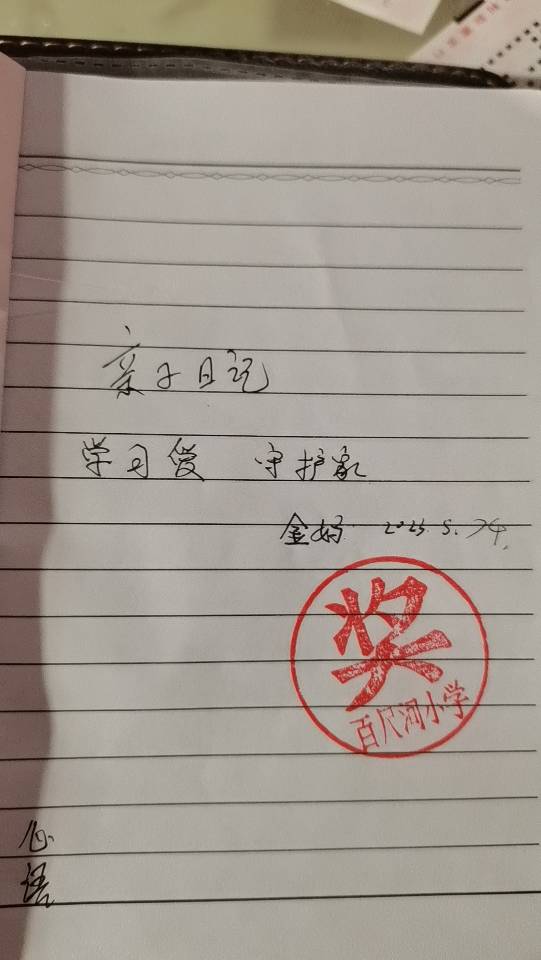 亲子日记
学习爱 守护家
金妈 2023.5.24.
奖
百尺河小学
语